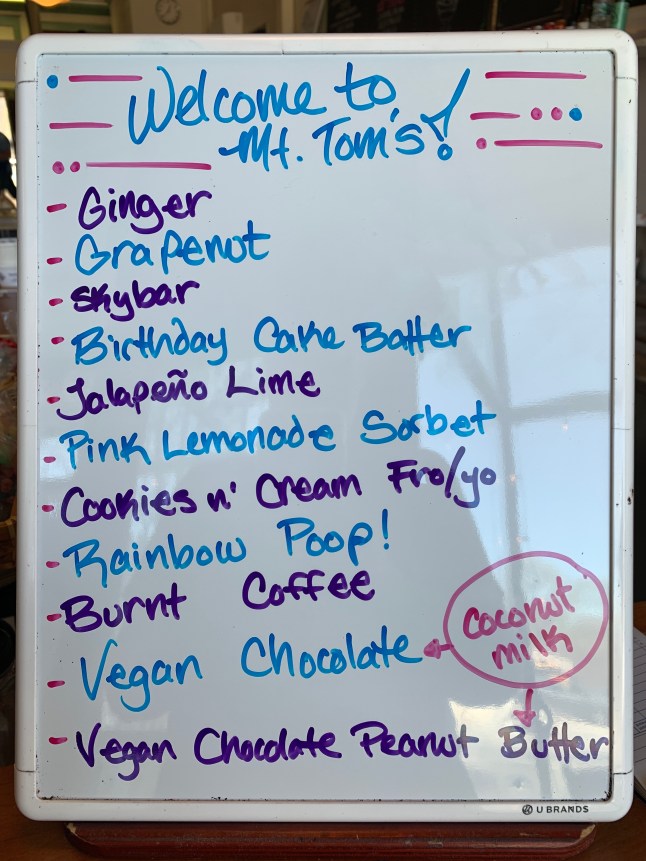 Welcome to
Mt. Tom's!
- Ginger
- Grapenut
- Skybar
- Birthday Cake Batter
- Jalapeño Lime
- Pink Lemonade Sorbet
- Cookies n' Cream Fro/yo
- Rainbow Poop!
- Burnt Coffee
- Vegan Chocolate
coconut
milk
- Vegan Chocolate Peanut Butter
U BRANDS